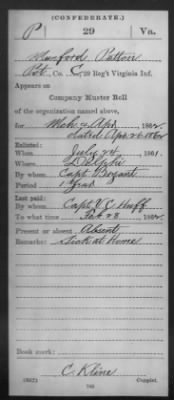 (CONFEDERATE.)
P 29 Va.
Munford Patton
Pvt, Co. C, 29 Reg't Virginia Inf.
Appears on
Company Muster Roll
of the organization named above,
for Mch & Apr, 1862.
dated Apr. 26 1862
Enlisted:
When July 24, 1861.
Where Delphi
By whom Capt Bryant
Period 1 year
Last paid:
By whom Capt Huff
To what time Feb 28, 1862.
Present or absent Absent
Remarks: Sick at Home
Book mark:
C. Kline
(642) Copyist.